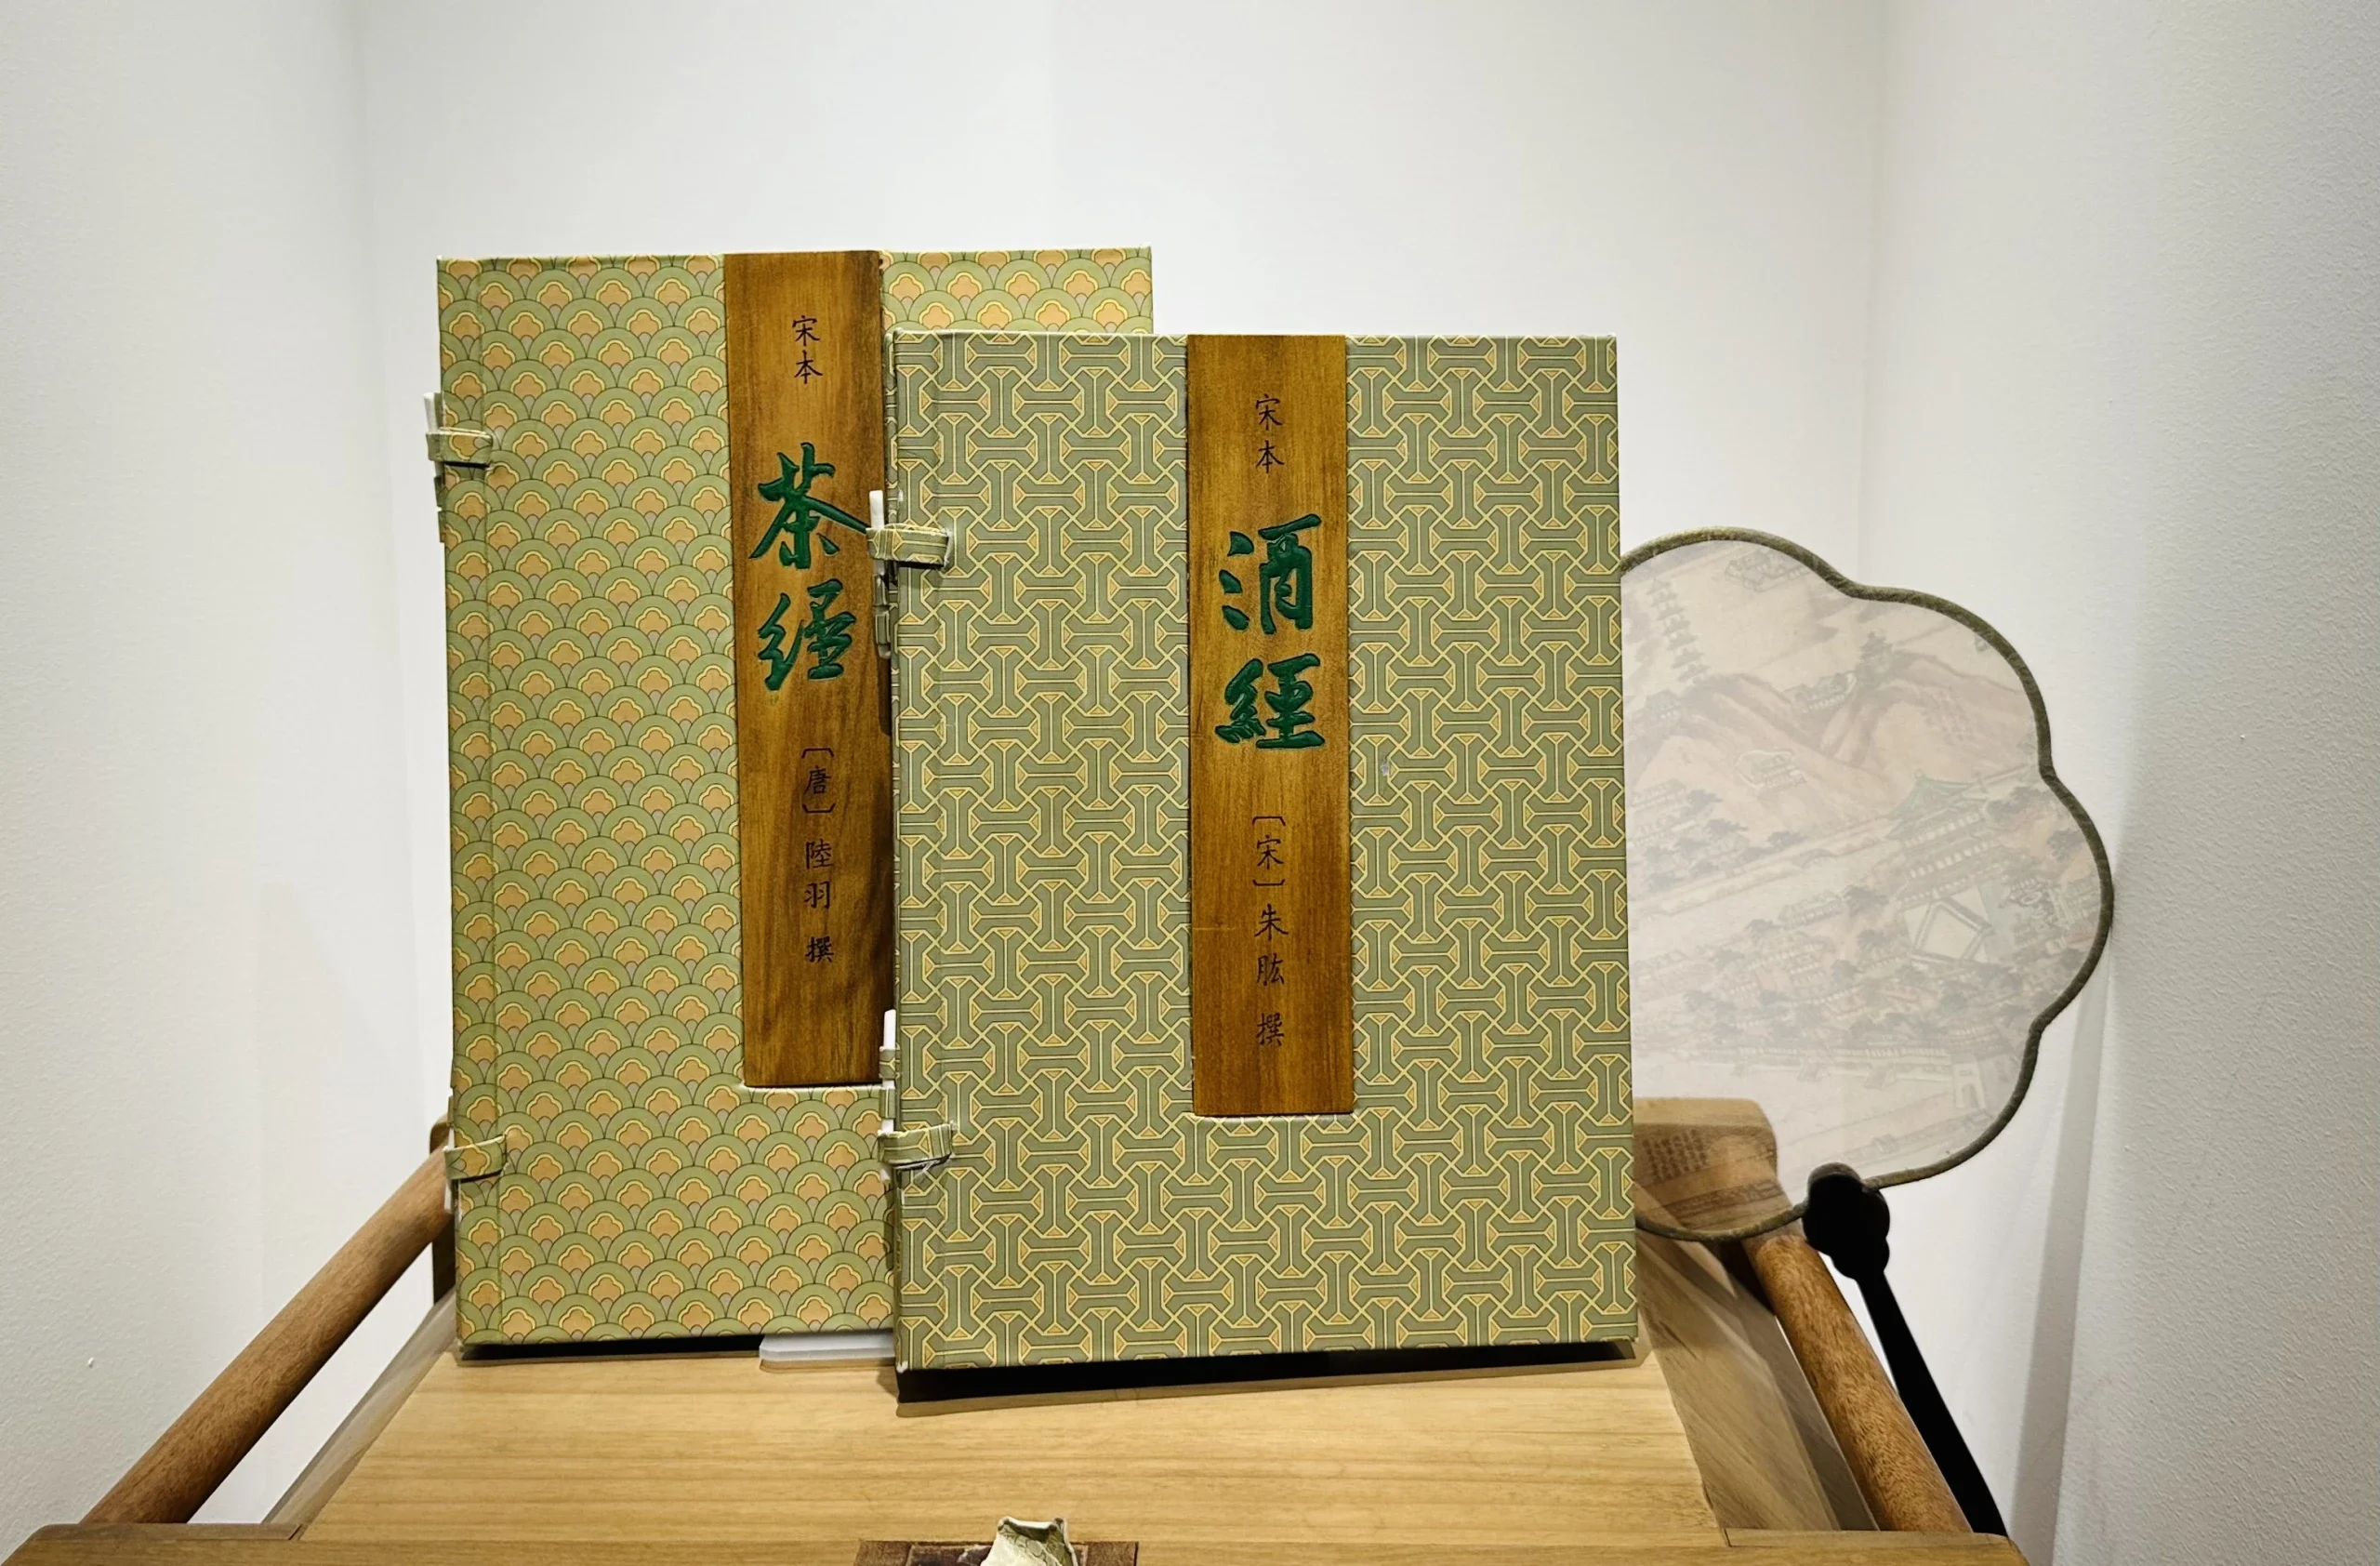 宋本
茶經
〔唐〕陸羽 撰
宋本
酒經
〔宋〕朱肱 撰